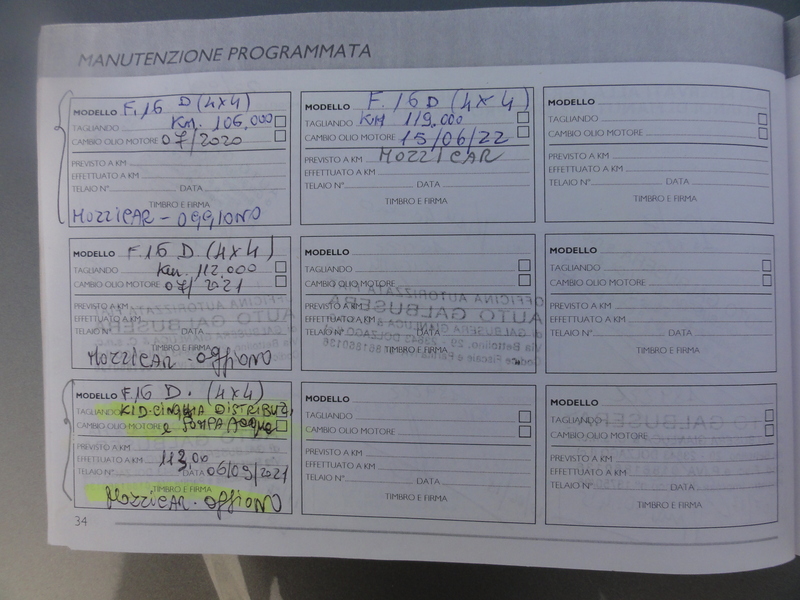 MANUTENZIONE PROGRAMMATA
MODELLO F.16 D (4x4)
TAGLIANDO Km. 106.000
CAMBIO OLIO MOTORE 07/2020
PREVISTO A KM
EFFETTUATO A KM
TELAIO N° DATA
TIMBRO E FIRMA
MOZZICAR - OGGIONO
MODELLO F.16 D (4x4)
TAGLIANDO KM 119.000
CAMBIO OLIO MOTORE 15/06/22
PREVISTO A KM MOZZICAR
EFFETTUATO A KM
TELAIO N° DATA
TIMBRO E FIRMA
MODELLO
TAGLIANDO
CAMBIO OLIO MOTORE
PREVISTO A KM
EFFETTUATO A KM
TELAIO N° DATA
TIMBRO E FIRMA
MODELLO F.16 D. (4x4)
TAGLIANDO Km. 112.000
CAMBIO OLIO MOTORE 07/2021
PREVISTO A KM
EFFETTUATO A KM
TELAIO N° DATA
TIMBRO E FIRMA
MOZZICAR - OGGIONO
MODELLO
TAGLIANDO
CAMBIO OLIO MOTORE
PREVISTO A KM
EFFETTUATO A KM
TELAIO N° DATA
TIMBRO E FIRMA
MODELLO
TAGLIANDO
CAMBIO OLIO MOTORE
PREVISTO A KM
EFFETTUATO A KM
TELAIO N° DATA
TIMBRO E FIRMA
MODELLO F.16 D. (4x4)
TAGLIANDO KID-CINGHIA DISTRIBUZ.
CAMBIO OLIO MOTORE e POMPA Acqua
PREVISTO A KM
EFFETTUATO A KM 113.00
TELAIO N° DATA 06/09/2021
TIMBRO E FIRMA
MOZZICAR - OGGIONO
MODELLO
TAGLIANDO
CAMBIO OLIO MOTORE
PREVISTO A KM
EFFETTUATO A KM
TELAIO N° DATA
TIMBRO E FIRMA
MODELLO
TAGLIANDO
CAMBIO OLIO MOTORE
PREVISTO A KM
EFFETTUATO A KM
TELAIO N° DATA
TIMBRO E FIRMA
34